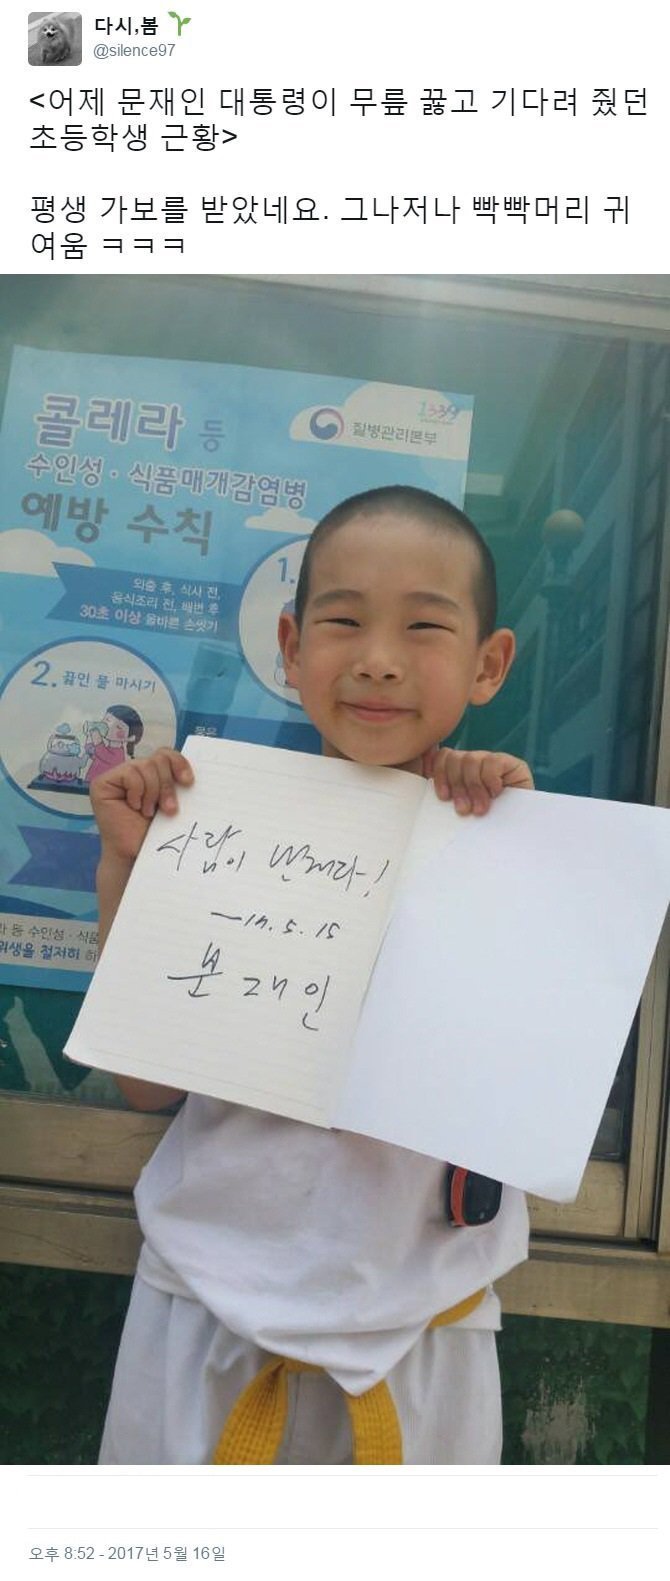 다시,봄
@silence97
<어제 문재인 대통령이 무릎 꿇고 기다려 줬던
초등학생 근황>
평생 가보를 받았네요. 그나저나 빡빡머리 귀
여움 ㅋㅋㅋ
1339
질병관리본부
콜레라 등
수인성·식품매개감염병
예방 수칙
1.
외출 후, 식사 전,
음식조리 전, 배변 후
30초 이상 올바른 손씻기
2. 끓인 물 마시기
물은
사람이 먼저다!
17. 5. 15
문재인
라 등 수인성·식품
위생을 철저히 하
오후 8:52 - 2017년 5월 16일